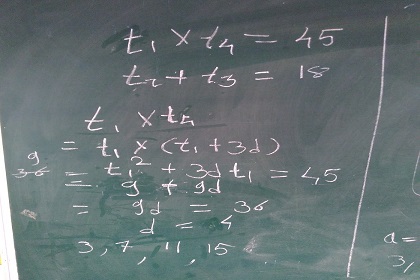 t₁ × t₄ = 45
t₂ + t₃ = 18
t₁ × t₄
= t₁ × (t₁ + 3d)
= t₁² + 3d t₁ = 45
9
36
= 9 + 9d
= 9d = 36
d = 4
3, 7, 11, 15
a =
3,